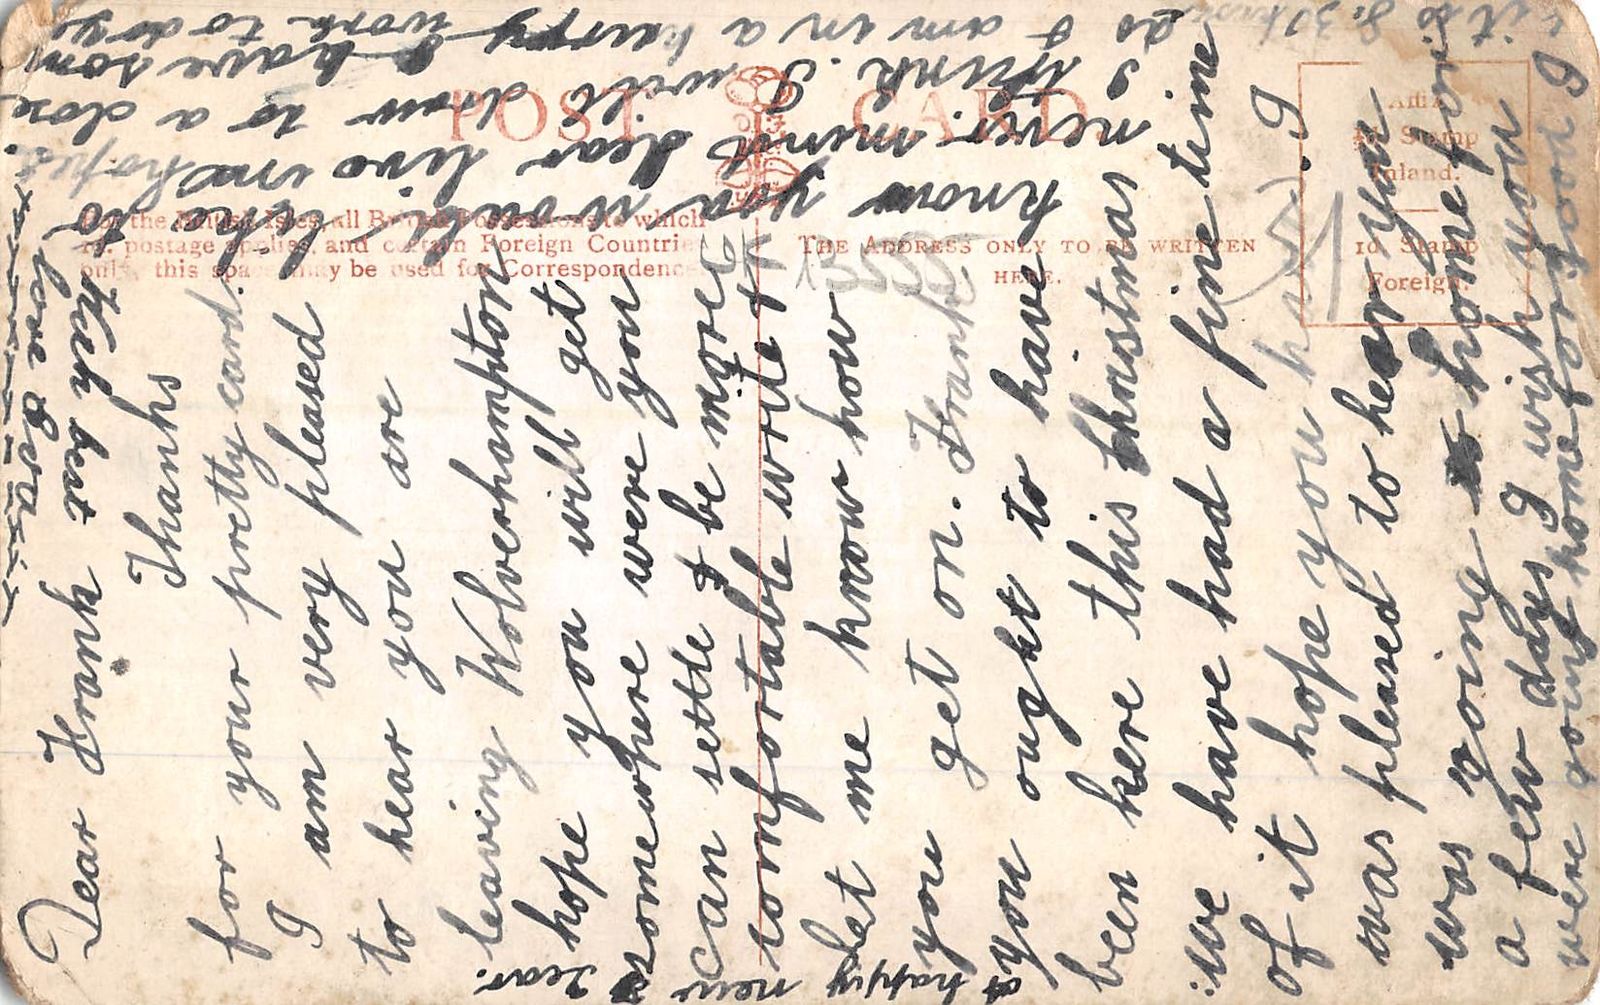 Dear Frank
Thanks
for your pretty card.
I am very pleased
to hear you are
leaving Wolverhampton
hope you will get
somewhere were you
can settle & be more
comfortable write &
Let me know how
you get on. Frank
you ought to have
been here this Christmas
we have had a fine time
of it hope you had. I
was pleased to hear you
was going home for
a few days I wish you
were going home for good I
it is 8.30
as I am in a hurry
never mind I think. I will draw to a close
have some work to do yet
know you would like to live in hopes.
With best
love Eva
xxxxxxxxxx
A happy
new
Year.
POST CARD.
For the British Isles, all British Possessions to which
1d. postage applies, and certain Foreign Countries
only, this space may be used for Correspondence.
THE ADDRESS ONLY TO BE WRITTEN
HERE.
Affix
½d. Stamp
Inland.
1d. Stamp
Foreign.